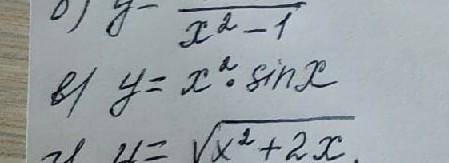 б) y = / x² - 1
в) y = x² · sin x
г) y = √x² + 2x.